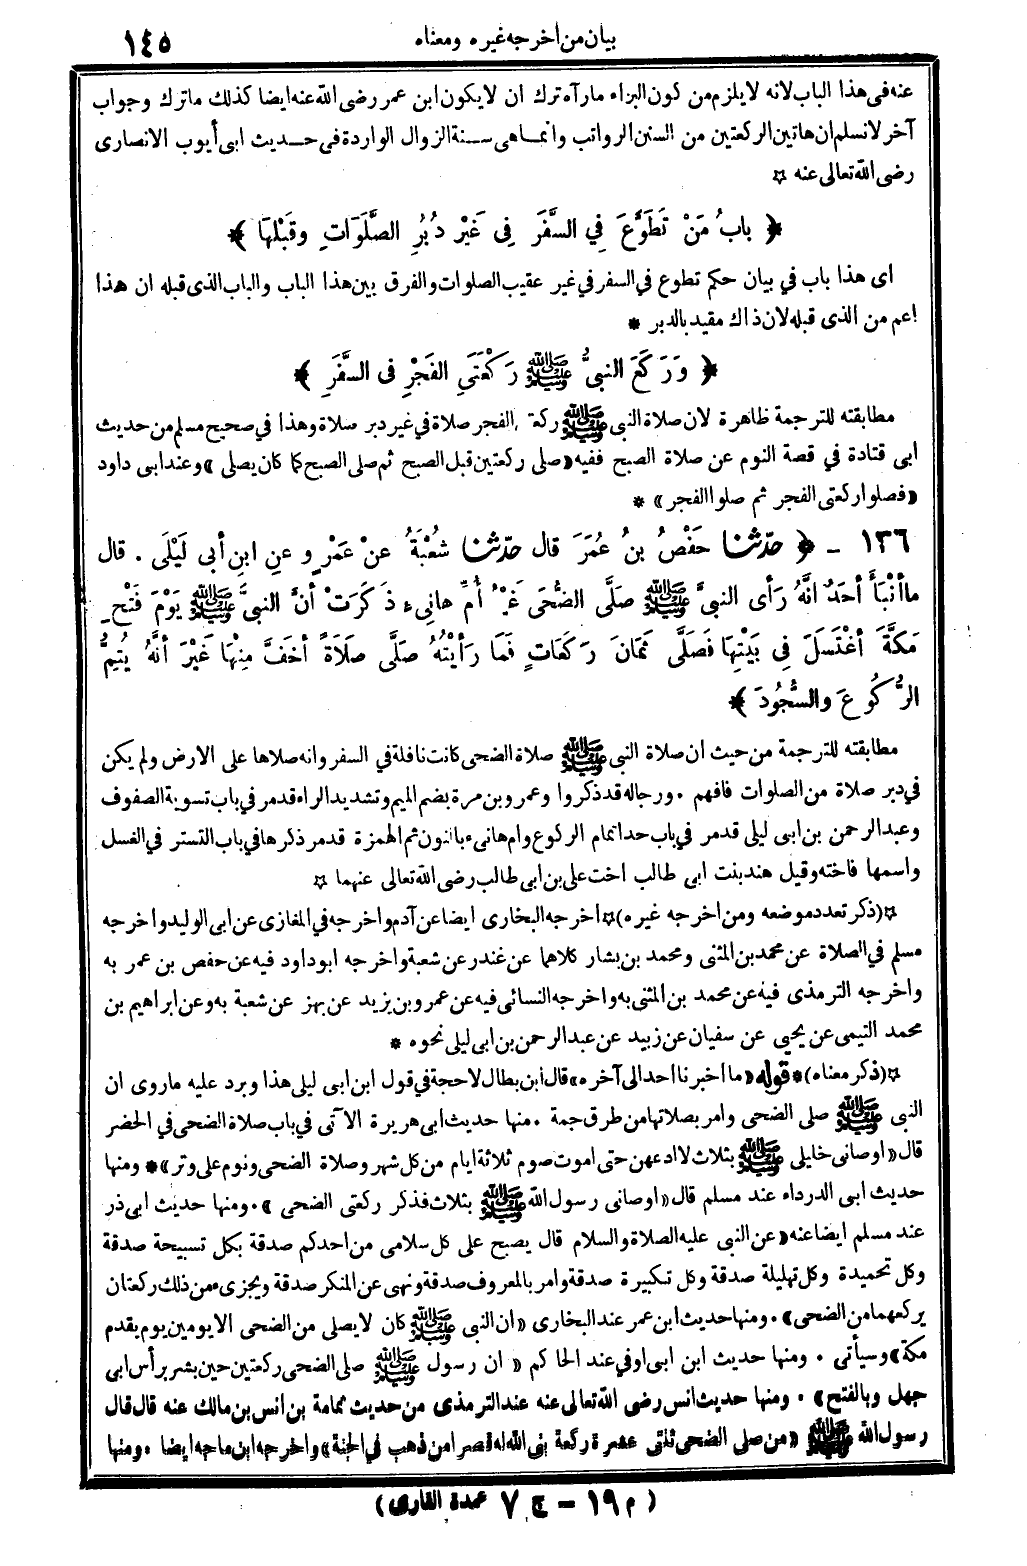 بيان من أخرجه غيره ومعناه
١٤٥
عنه فى هذا الباب لانه لا يلزم من كون البراء ما رآه ترك ان لا يكون ابن عمر رضى الله عنه ايضا كذلك ما ترك وجواب
آخر لا نسلم ان هاتين الركعتين من السنن الرواتب وانما هى سنة الزوال الواردة فى حديث ابى أيوب الانصارى
رضى الله تعالى عنه ☆
﴿ بابُ مَنْ تَطَوَّعَ فِي السَّفَرَ فِى غَيْرِ دُبُرِ الصَّلَوَاتِ وقَبْلِهَا ﴾
اى هذا باب في بيان حكم تطوع في السفر في غير عقيب الصلوات والفرق بين هذا الباب والباب الذى قبله ان هذا
اعم من الذى قبله لان ذاك مقيد بالدبر *
﴿ وَرَكَعَ النبيُّ ﷺ رَكْعَتَيِ الفَجْرِ فى السَّفَرِ ﴾
مطابقته للترجمة ظاهرة لان صلاة النبى ﷺ ركعتى الفجر صلاة في غير دبر صلاة وهذا في صحيح مسلم من حديث
ابى قتادة في قصة النوم عن صلاة الصبح ففيه «صلى ركعتين قبل الصبح ثم صلى الصبح كما كان يصلى» وعند ابى داود
«فصلوا ركعتى الفجر ثم صلوا الفجر» *
١٣٦ ـ ﴿ حدّثنا حَفْصُ بنُ عُمَرَ قال حدّثنا شُعْبَةُ عنْ عَمْرٍو عنِ ابنِ أبى لَيْلَى . قال
ما أنْبَأَ أحَدٌ انَّهُ رَأى النبىَّ ﷺ صَلَّى الضُّحَى غَيْرُ أُمِّ هانِىءٍ ذَكَرَتْ أنَّ النبىَّ ﷺ يَوْمَ فَتْحِ
مَكَّةَ اغْتَسَلَ فِى بَيْتِهَا فَصَلَّى ثَمَانَ رَكَعَاتٍ فَمَا رَأيْتُهُ صَلَّى صَلاَةً أخَفَّ مِنْهَا غَيْرَ أنَّهُ يُتِمُّ
الرُّكُوعَ والسُّجُودَ ﴾
مطابقته للترجمة من حيث ان صلاة النبى ﷺ صلاة الضحى كانت نافلة في السفر وانه صلاها على الارض ولم يكن
في دبر صلاة من الصلوات فافهم . ورجاله قد ذكروا وعمرو بن مرة بضم الميم وتشديد الراء قد مر في باب تسوية الصفوف
وعبد الرحمن بن ابى ليلى قد مر في باب حد اتمام الركوع وام هانىء بالنون ثم الهمزة قد مر ذكرها في باب التستر في الغسل
واسمها فاخته وقيل هند بنت ابى طالب اخت على بن ابى طالب رضى الله تعالى عنهما ☆
☆(ذكر تعدد موضعه ومن اخرجه غيره)☆ اخرجه البخارى ايضا عن آدم واخرجه في المغازى عن ابى الوليد واخرجه
مسلم في الصلاة عن محمد بن المثنى ومحمد بن بشار كلاهما عن غندر عن شعبة واخرجه ابو داود فيه عن حفص بن عمر به
واخرجه الترمذى فيه عن محمد بن المثنى به واخرجه النسائى فيه عن عمرو بن يزيد عن بهز عن شعبة به وعن ابراهيم بن
محمد التيمى عن يحيى عن سفيان عن زبيد عن عبد الرحمن بن ابى ليلى نحوه *
☆(ذكر معناه)* قوله «ما اخبرنا احد الى آخره» قال ابن بطال لا حجة في قول ابن ابى ليلى هذا ويرد عليه ما روى ان
النبى ﷺ صلى الضحى وامر بصلاتها من طرق جمة . منها حديث ابى هريرة الآتى في باب صلاة الضحى في الحضر
قال «اوصانى خليلى ﷺ بثلاث لا ادعهن حتى اموت صوم ثلاثة ايام من كل شهر وصلاة الضحى ونوم على وتر»* ومنها
حديث ابى الدرداء عند مسلم قال «اوصانى رسول الله ﷺ بثلاث فذكر ركعتى الضحى ». ومنها حديث ابى ذر
عند مسلم ايضا عنه «عن النبى عليه الصلاة والسلام قال يصبح على كل سلامى من احدكم صدقة بكل تسبيحة صدقة
وكل تحميدة وكل تهليلة صدقة وكل تكبيرة صدقة وامر بالمعروف صدقة ونهى عن المنكر صدقة ويجزى ممن ذلك ركعتان
يركعهما من الضحى» . ومنها حديث ابن عمر عند البخارى «ان النبى ﷺ كان لا يصلى من الضحى الا يومين يوم يقدم
مكة» وسيأتى . ومنها حديث ابن ابى اوفي عند الحاكم « ان رسول ﷺ صلى الضحى ركعتين حين بشر برأس ابى
جهل وبالفتح» . ومنها حديث انس رضى الله تعالى عنه عند الترمذى من حديث ثمامة بن انس بن مالك عنه قال قال
رسول الله ﷺ «من صلى الضحى ثنتى عشرة ركعة بنى الله له قصرا من ذهب في الجنة» واخرجه ابن ماجه ايضا . ومنها
( م ١٩ – ج ٧ عمدة القارى )